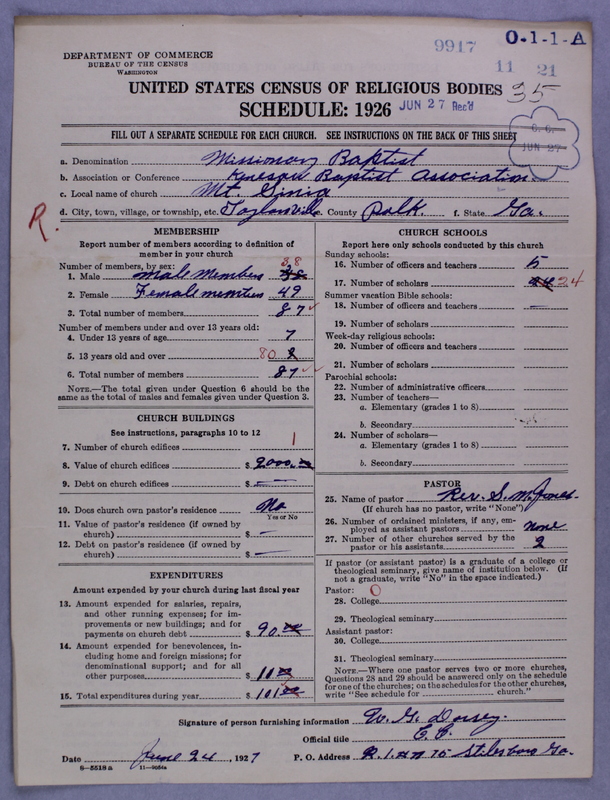 O-1-1-A
9917
11 21
DEPARTMENT OF COMMERCE
BUREAU OF THE CENSUS
WASHINGTON
UNITED STATES CENSUS OF RELIGIOUS BODIES
35
SCHEDULE: 1926
JUN 27 Rec'd
FILL OUT A SEPARATE SCHEDULE FOR EACH CHURCH. SEE INSTRUCTIONS ON THE BACK OF THIS SHEET
JUN 27
a. Denomination Missionary Baptist
b. Association or Conference Kenesaw Baptist Association
c. Local name of church Mt. Sinia
d. City, town, village, or township, etc. Taylorsville e. County Polk. f. State Ga.
R.
MEMBERSHIP
Report number of members according to definition of
member in your church
Number of members by sex:
1. Male male Members 38
2. Female Female members 49
3. Total number of members 87
Number of members under and over 13 years old:
4. Under 13 years of age 7
5. 13 years old and over 80
6. Total number of members 87
NOTE.—The total given under Question 6 should be the
same as the total of males and females given under Question 3.
CHURCH BUILDINGS
See instructions, paragraphs 10 to 12
7. Number of church edifices 1
8. Value of church edifices $ 2000.00
9. Debt on church edifices $ —
10. Does church own pastor's residence No
Yes or No
11. Value of pastor's residence (if owned by
church) $ —
12. Debt on pastor's residence (if owned by
church) $ —
EXPENDITURES
Amount expended by your church during last fiscal year
13. Amount expended for salaries, repairs,
and other running expenses; for im-
provements or new buildings; and for
payments on church debt $ 90.00
14. Amount expended for benevolences, in-
cluding home and foreign missions; for
denominational support; and for all
other purposes
15. Total expenditures during year
CHURCH SCHOOLS
Report here only schools conducted by this church
Sunday schools:
16. Number of officers and teachers 5
17. Number of scholars 24
Summer vacation Bible schools:
18. Number of officers and teachers —
19. Number of scholars
Week-day religious schools:
20. Number of officers and teachers
21. Number of scholars
Parochial schools:
22. Number of administrative officers
23. Number of teachers—
a. Elementary (grades 1 to 8)
b. Secondary
24. Number of scholars—
a. Elementary (grades 1 to 8)
b. Secondary
PASTOR
25. Name of pastor Rev. S. M. Jones
(If church has no pastor, write "None")
26. Number of ordained ministers, if any, em-
ployed as assistant pastors none
27. Number of other churches served by the
pastor or his assistants 2
If pastor (or assistant pastor) is a graduate of a college or
theological seminary, give name of institution below. (If
not a graduate, write "No" in the space indicated.)
Pastor: 0
28. College
29. Theological seminary
Assistant pastor:
30. College
31. Theological seminary
NOTE.—Where one pastor serves two or more churches,
Questions 28 and 29 should be answered only on the schedule
for one of the churches; on the schedules for the other churches,
write "See schedule for church."
Signature of person furnishing information W. G. Dorsey.
Official title
Date June 24, 1927 P. O. Address Stilesboro Ga.
8-5518a 11-9064a